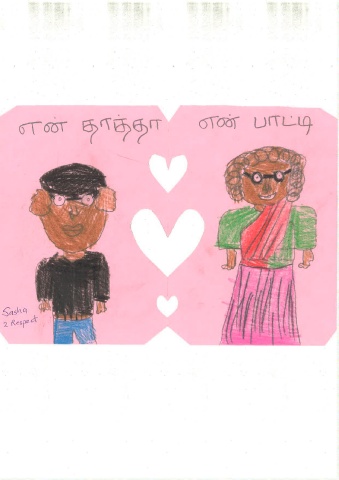 என் தாத்தா
என் பாட்டி
Sasha
2 Respect